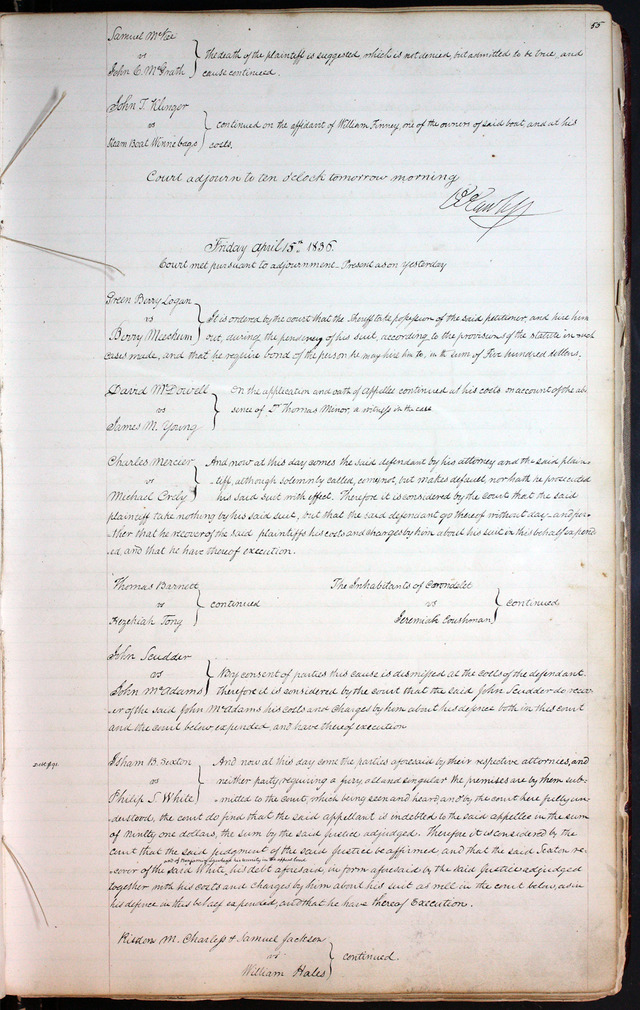 55
Samuel McKee
vs
John C. McGrath
the death of the plaintiff is suggested, which is not denied, but admitted to be true, and
cause continued.
John T. Klinger
vs
Steam Boat Winnebago
continued on the affidavit of William Finney, one of the owners of said boat, and at his
costs.
Court adjourn to ten o'clock tomorrow morning
Friday April 15th 1836.
Court met pursuant to adjournment_ Present as on yesterday
Green Berry Logan
vs
Berry Meechum
It is ordered by the court that the Sheriff take possession of the said petitioner, and hire him
out, during the pendency of his suit, according to the provisions of the statute in such
cases made, and that he require bond of the person he may hire him to, in the sum of Five hundred dollars.
David McDowell
vs
James M. Young
On the application and oath of appellee continued at his costs on account of the ab-
sence of Dr Thomas Minor, a witness in the case
Charles Mercier
vs
Michael Ordy
And now at this day comes the said defendant by his attorney and the said plain-
tiff, although solemnly called, comes not, but makes default, nor hath he prosecuted
his said suit with effect. Therefore it is considered by the Court that the said
plaintiff take nothing by his said suit, but that the said defendant go thereof without day_ and fur-
ther that he recover of the said plaintiff his costs and charges by him about his suit in this behalf expend
ed, and that he have thereof execution.
Thomas Barnett
vs
Hezehiah Tong
continued
The Inhabitants of Corondelet
vs
Jeremiah Coushman
continued
John Scudder
vs
John McAdams
By consent of parties this cause is dismissed at the costs of the defendant.
Therefore it is considered by the court that the said John Scudder do recov-
er of the said John McAdams his costs and charges by him about his defence both in this court
and the court below, expended, and have thereof execution
Isham B. Sexton
vs
Philip S. White
And now at this day come the parties aforesaid by their respective attornies, and
neither party requiring a jury, all and singular the premises are by them sub-
mitted to the court, which being seen and heard, and by the court here fully un-
derstood, the court do find that the said appellant is indebted to the said appellee in the sum
of ninety one dollars, the sum by the said Justice adjudged. Therefore it is considered by the
court that the said judgment of the said Justice be affirmed and that the said Sexton re-
cover of the said White, his debt aforesaid, in form aforesaid by the said Justice adjudged
together with his costs and charges by him about his suit as well in the court below, as in
his defence in this behalf expended, and that he have thereof Execution.
Risdon M. Charless & Samuel Jackson
vs
William Hales
continued.